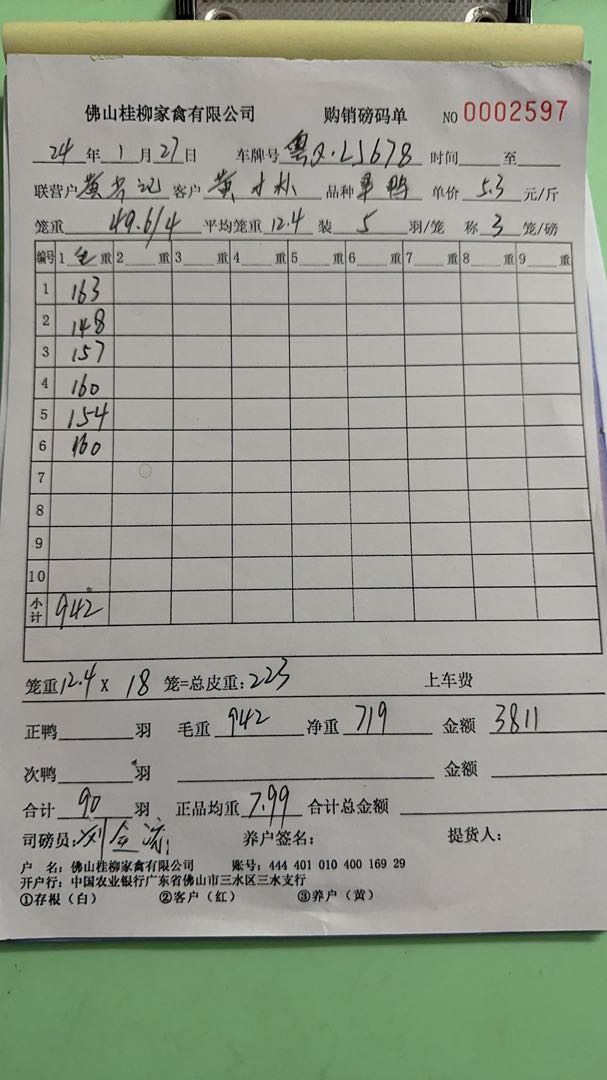 佛山桂柳家禽有限公司 购销磅码单 NO 0002597
24 年 1 月 27 日 车牌号 粤Q·LJ678 时间 至
联营户 黄 记 客户 黄 品种 鸭 单价 5.3 元/斤
笼重 49.6/4 平均笼重 12.4 装 5 羽/笼 称 3 笼/磅
编号 1 毛 重 2 重 3 重 4 重 5 重 6 重 7 重 8 重 9 重
1 163
2 148
3 157
4 160
5 154
6 160
7
8
9
10
小计 942
笼重 12.4 X 18 笼=总皮重: 223 上车费
正鸭 羽 毛重 942 净重 719 金额 3811
次鸭 羽 金额
合计 90 羽 正品均重 7.99 合计总金额
司磅员: 刘 养户签名: 提货人:
户 名: 佛山桂柳家禽有限公司 账号: 444 401 010 400 169 29
开户行: 中国农业银行广东省佛山市三水区三水支行
①存根（白） ②客户（红） ③养户（黄）